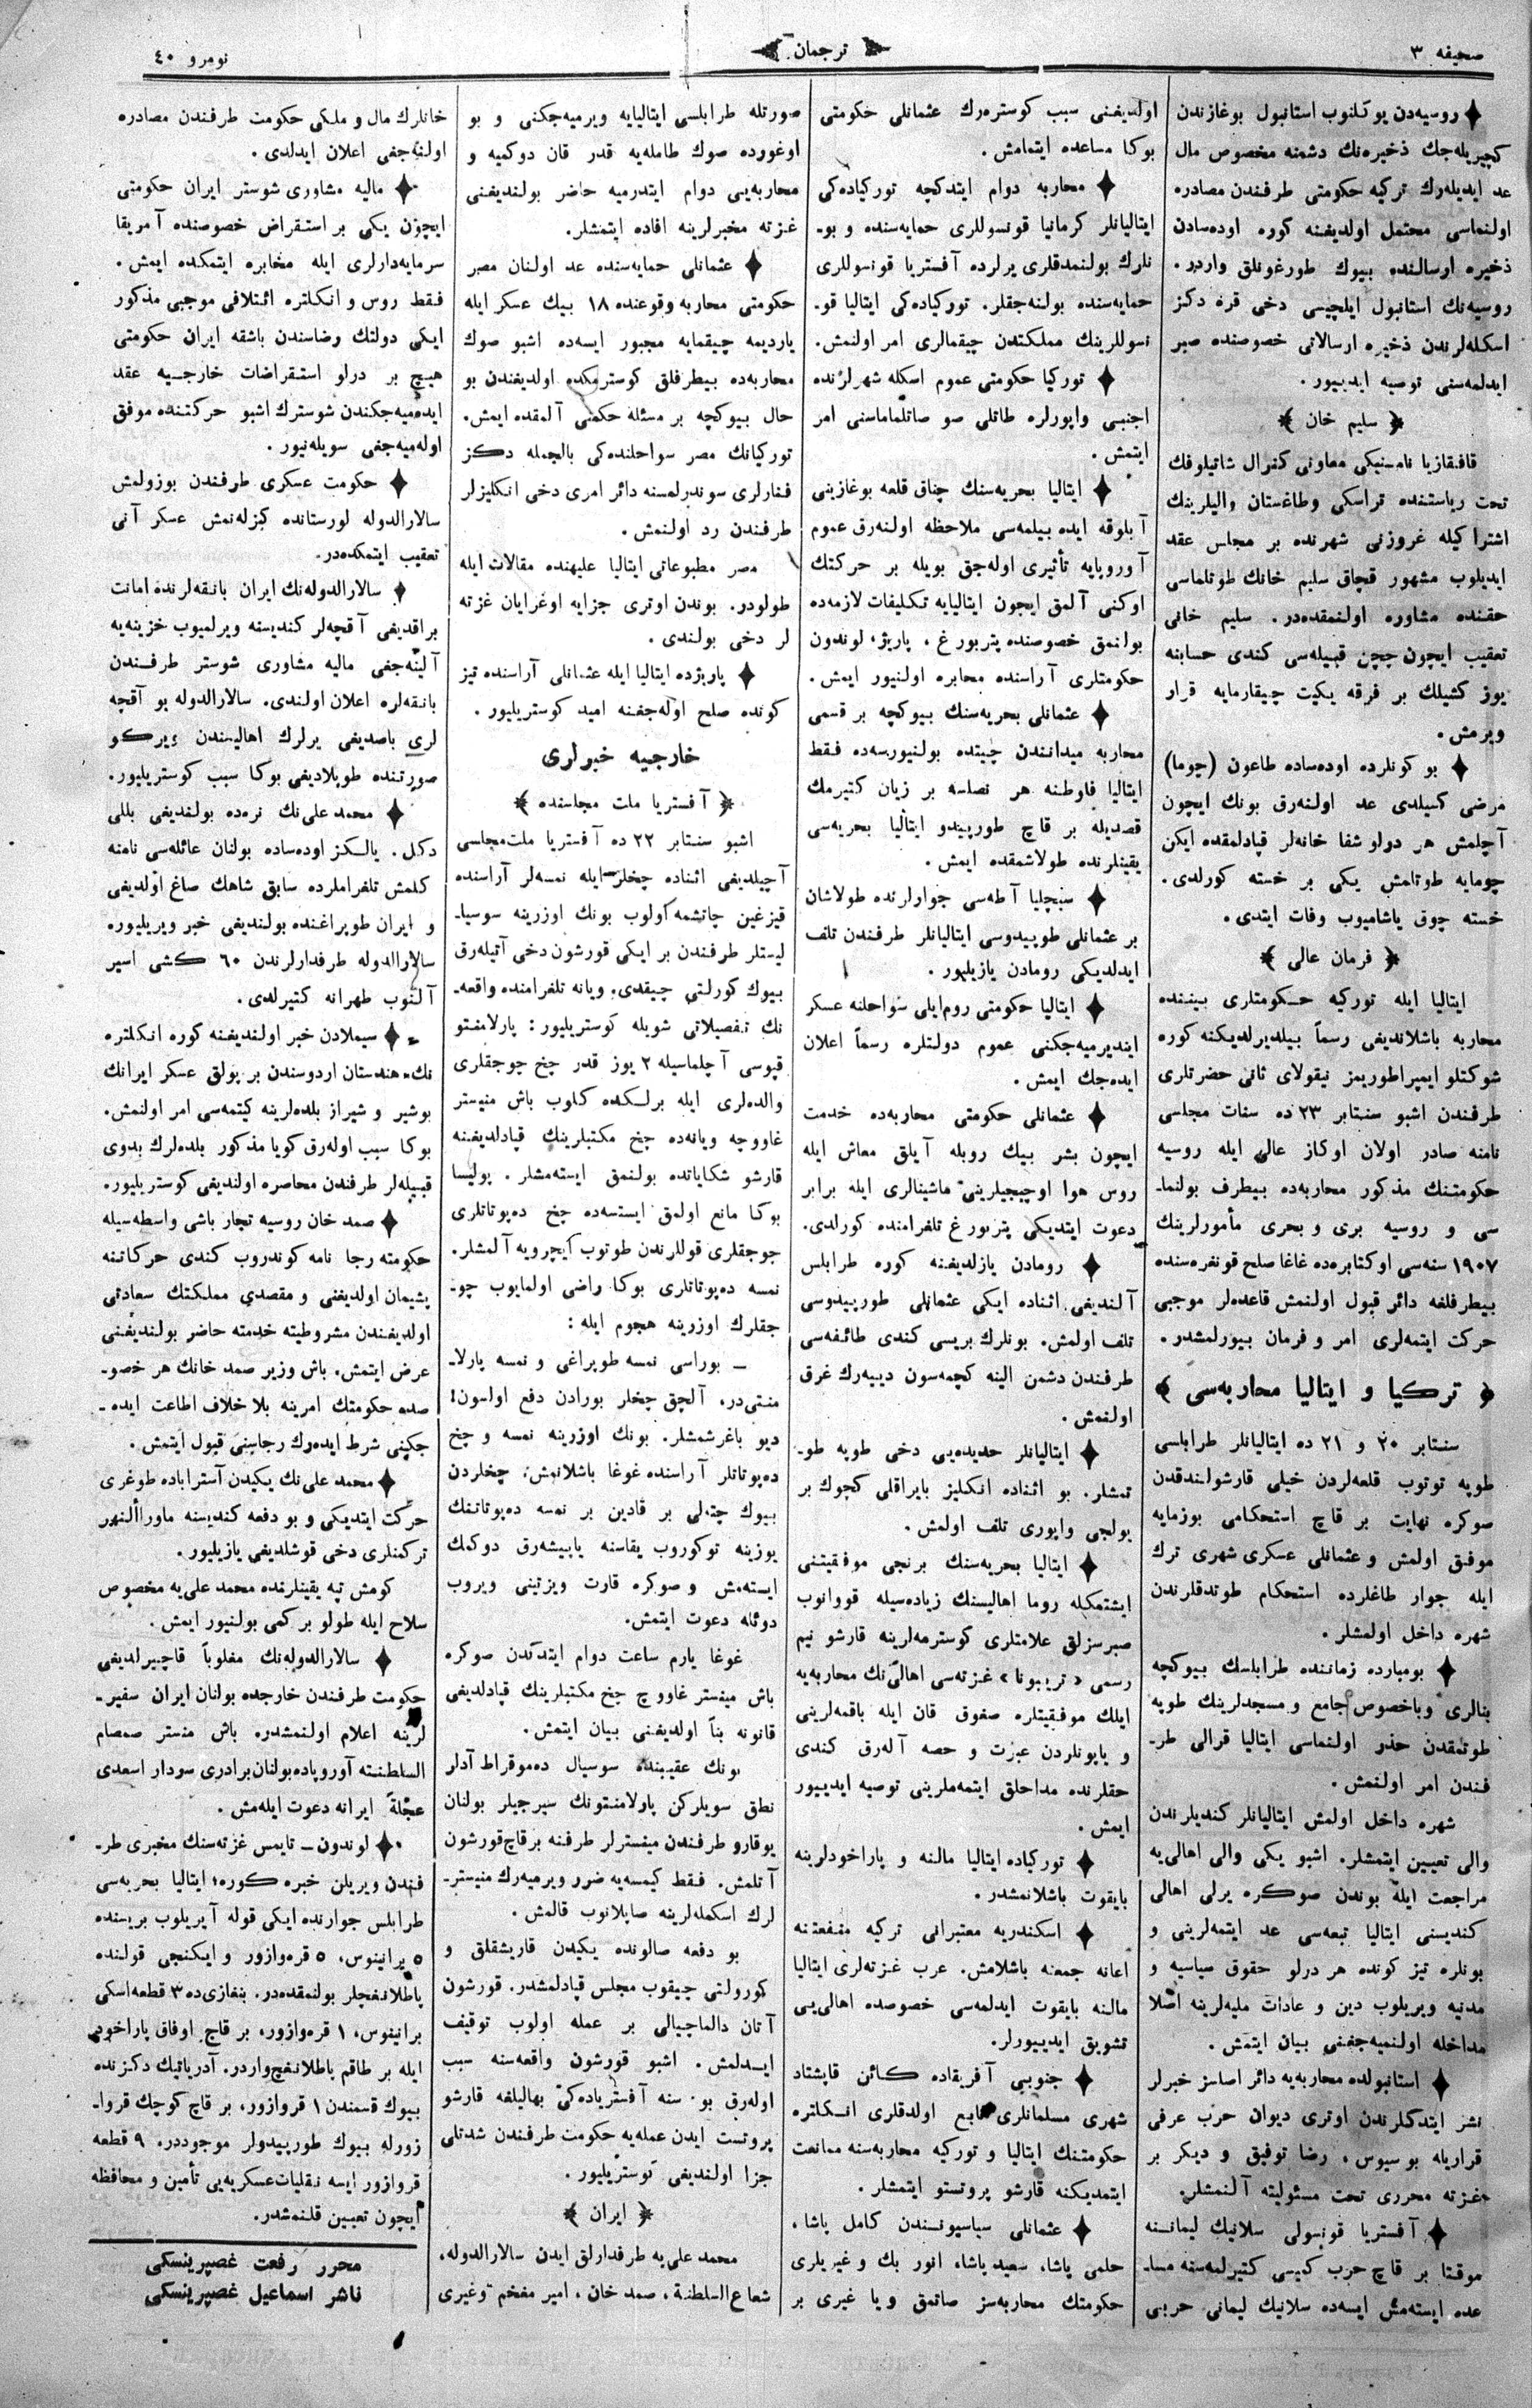 صحیفه ٣
ترجمان
نومرو ٤٠
روسیه‌دن یوکلنوب استانبول بوغازندن
کچیریله‌جك ذخیره‌نك دشمنه مخصوص مال
عد ایدیله‌رك ترکیه حکومتی طرفندن مصادره
اولنماسی محتمل اولدیغنه کوره اوده‌سادن
ذخیره ارسالنده بیوك طورغونلق واردر.
روسیه‌نك استانبول ایلچیسی دخی قره دکز
اسکله‌لرندن ذخیره ارسالاتی خصوصنده صبر
ایدلمه‌سنی توصیه ایدییور.
﴿ سلیم خان ﴾
قافقازیا نامسنیکی معاونی کنرال شاتیلوفك
تحت ریاستنده تراسکی وطاغستان والیلرینك
اشتراکیله غروزنی شهرنده بر مجلس عقد
ایدیلوب مشهور قچاق سلیم خانك طوتلماسی
حقنده مشاوره اولنمقده‌در. سلیم خانی
تعقیب ایچون چچن قبیله‌سی کندی حسابنه
یوز کشیلك بر فرقه یکیت چیقارمایه قرار
ویرمش.
بو کونلرده اوده‌ساده طاعون (چوما)
مرضی کسیلدی عد اولنه‌رق بونك ایچون
آچلمش هر درلو شفا خانه‌لر قپادلمقده ایکن
چومایه طوتلمش یکی بر خسته کورلدی.
خسته چوق یاشامیوب وفات ایتدی.
﴿ فرمان عالی ﴾
ایتالیا ایله تورکیه حکومتلری بیننده
محاربه باشلاندیغی رسماً بیلدیرلدیکنه کوره
شوکتلو ایمپراطوریمز نیقولای ثانی حضرتلری
طرفندن اشبو سنتابر ٢٣ ده سنات مجلسی
نامنه صادر اولان اوکاز عالی ایله روسیه
حکومتنك مذکور محاربه‌ده بیطرف بولنما-
سی و روسیه بری و بحری مأمورلرینك
١٩٠٧ سنه‌سی اوکتابره‌ده غاغا صلح قونفره‌سنده
بیطرفلغه دائر قبول اولنمش قاعده‌لر موجبی
حرکت ایتمه‌لری امر و فرمان بیورلمشدر.
﴿ ترکیا و ایتالیا محاربه‌سی ﴾
سنتابر ٢٠ و ٢١ ده ایتالیانلر طرابلسی
طوپه توتوب قلعه‌لردن خیلی قارشولندقدن
صوکره نهایت بر قاچ استحکامی بوزمایه
موفق اولمش و عثمانلی عسکری شهری ترك
ایله جوار طاغلرده استحکام طوتدقلرندن
شهره داخل اولمشلر.
بومبارده زماننده طرابلسك بیوکچه
بنالری وباخصوص جامع و مسجدلرینك طوپه
طوتمقدن حذر اولنماسی ایتالیا قرالی طر-
فندن امر اولنمش.
شهره داخل اولمش ایتالیانلر کندیلرندن
والی تعیین ایتمشلر. اشبو یکی والی اهالی‌یه
مراجعت ایله بوندن صوکره یرلی اهالی
کندیسنی ایتالیا تبعه‌سی عد ایتمه‌لرینی و
بونلره تیز کونده هر درلو حقوق سیاسیه و
مدنیه ویریلوب دین و عادات ملیه‌لرینه اصلا
مداخله اولنمیه‌جغنی بیان ایتمش.
استانبولده محاربه‌یه دائر اصلسز خبرلر
نشر ایتدکلرندن اوتری دیوان حرب عرفی
قراریله بوسیوس، رضا توفیق و دیکر بر
غزته محرری تحت مسئولیته آلنمشلر.
آفستریا قونسولی سلانیك لیماننه
موقتا بر قاچ حرب کمیسی کتیرلمه‌سنه مسا-
عده ایسته‌مش ایسه‌ده سلانیك لیمانی حربی
اولدیغنی سبب کوستره‌رك عثمانلی حکومتی
بوکا مساعده ایتمامش.
محاربه دوام ایتدکچه تورکیاده‌کی
ایتالیانلر کرمانیا قونسوللری حمایه‌سنده و بو-
نلرك بولنمدقلری یرلرده آفستریا قونسوللری
حمایه‌سنده بولنه‌جقلر. تورکیاده‌کی ایتالیا قو-
نسوللرینك مملکتدن چیقمالری امر اولنمش.
تورکیا حکومتی عموم اسکله شهرلرنده
اجنبی واپورلره طاتلی صو صاتلماماسنی امر
ایتمش.
ایتالیا بحریه‌سنك چناق قلعه بوغازینی
آبلوقه ایده بیلمه‌سی ملاحظه اولنه‌رق عموم
آوروپایه تأثیری اوله‌جق بویله بر حرکتك
اوکنی آلمق ایچون ایتالیایه تکلیفات لازمه‌ده
بولنمق خصوصنده پتربورغ، پاریژ، لوندون
حکومتلری آراسنده مخابره اولنیور ایمش.
عثمانلی بحریه‌سنك بیوکچه بر قسمی
محاربه میدانندن چیتده بولنیورسه‌ده فقط
ایتالیا فلوطنه هر نصلسه بر زیان کتیرمك
قصدیله بر قاچ طورپیدو ایتالیا بحریه‌سی
یقینلرنده طولاشمقده ایمش.
سیچلیا آطه‌سی جوارلرنده طولاشان
بر عثمانلی طوپیدوسی ایتالیانلر طرفندن تلف
ایدلدیکی رومادن یازیلیور.
ایتالیا حکومتی روم‌ایلی سواحلنه عسکر
ایندیرمیه‌جکنی عموم دولتلره رسماً اعلان
ایده‌جك ایمش.
عثمانلی حکومتی محاربه‌ده خدمت
ایچون بشر بیك روبله آیلق معاش ایله
روس هوا اوچیجیلرینی ماشینالری ایله برابر
دعوت ایتدیکی پتربورغ تلغرامنده کورلدی.
رومادن یازلدیغنه کوره طرابلس
آلندیغی اثناده ایکی عثمانلی طورپیدوسی
تلف اولمش. بونلرك بریسی کندی طائفه‌سی
طرفندن دشمن الینه کچمه‌سون دییه‌رك غرق
اولنمش.
ایتالیانلر حدیده‌یی دخی طوپه طو-
تمشلر. بو اثناده انکلیز بایراقلی کچوك بر
یولجی واپوری تلف اولمش.
ایتالیا بحریه‌سنك برنجی موفقیتنی
ایشتمکله روما اهالیسنك زیاده‌سیله قووانوب
صبرسزلق علامتلری کوسترمه‌لرینه قارشو نیم
رسمی «تریبونا» غزته‌سی اهالی‌نك محاربه‌یه
ایلك موفقیتلره صغوق قان ایله باقمه‌لرینی
و یاپونلردن عبرت و حصه آله‌رق کندی
حقلرنده مداحلق ایتمه‌ملرینی توصیه ایدییور
ایمش.
تورکیاده ایتالیا مالنه و پاراخودلرینه
بایقوت باشلانمشدر.
اسکندریه معتبرانی ترکیه منفعتنه
اعانه جمعنه باشلامش. عرب غزته‌لری ایتالیا
مالنه بایقوت ایدلمه‌سی خصوصده اهالی‌یی
تشویق ایدییورلر.
جنوبی آفریقاده کائن قاپشتاد
شهری مسلمانلری تابع اولدقلری انکلتره
حکومتنك ایتالیا و تورکیه محاربه‌سنه ممانعت
ایتمدیکنه قارشو پروتستو ایتمشلر.
عثمانلی سیاسیونندن کامل پاشا،
حلمی پاشا، سعید پاشا، انور بك و غیریلری
حکومتك محاربه‌سز صاتمق و یا غیری بر
صورتله طرابلسی ایتالیایه ویرمیه‌جکنی و بو
اوغورده صوك طامله‌یه قدر قان دوکمیه و
محاربه‌یی دوام ایتدرمیه حاضر بولندیغنی
غزته مخبرلرینه افاده ایتمشلر.
عثمانلی حمایه‌سنده عد اولنان مصر
حکومتی محاربه وقوعنده ١٨ بیك عسکر ایله
یاردیمه چیقمایه مجبور ایسه‌ده اشبو صوك
محاربه‌ده بیطرفلق کوسترمکده اولدیغندن بو
حال بیوکچه بر مسئله حکمنی آلمقده ایمش.
تورکیانك مصر سواحلنده‌کی بالجمله دکز
فنارلری سوندرلمسنه دائر امری دخی انکلیزلر
طرفندن رد اولنمش.
مصر مطبوعاتی ایتالیا علیهنده مقالات ایله
طولودر. بوندن اوتری جزایه اوغرایان غزته
لر دخی بولندی.
پاریژده ایتالیا ایله عثمانلی آراسنده تیز
کونده صلح اوله‌جغنه امید کوستریلیور.
خارجیه خبرلری
﴿ آفستریا ملت مجلسنده ﴾
اشبو سنتابر ٢٢ ده آفستریا ملت‌مجلسی
آچیلدیغی اثناده چخلر ایله نمسه‌لر آراسنده
قیزغین چاتشمه اولوب بونك اوزرینه سوسیا-
لیستلر طرفندن بر ایکی قورشون دخی آتیله‌رق
بیوك کورلتی چیقدی. ویانه تلغرامنده واقعه-
نك تفصیلاتی شویله کوستریلیور: پارلامنتو
قپوسی آچلماسیله ٢ یوز قدر چخ چوجقلری
والده‌لری ایله برلکده کلوب باش منیستر
غاووچه ویانه‌ده چخ مکتبلرینك قپادلدیغنه
قارشو شکایاتده بولنمق ایسته‌مشلر. پولیسا
بوکا مانع اولمق ایستسه‌ده چخ ده‌پوتاتلری
جوجقلری قوللرندن طوتوب ایچرویه آلمشلر.
نمسه ده‌پوتاتلری بوکا راضی اولمایوب چو-
جقلرك اوزرینه هجوم ایله:
— بوراسی نمسه طوپراغی و نمسه پارلا-
منتی‌در، آلچق چخلر بورادن دفع اولسون!
دیو باغرشمشلر. بونك اوزرینه نمسه و چخ
ده‌پوتاتلر آراسنده غوغا باشلانمش، چخلردن
بیوك جثه‌لی بر قادین بر نمسه ده‌پوتاتنك
یوزینه توکوروب یقاسنه یاپیشه‌رق دوکمك
ایسته‌مش و صوکره قارت ویزیتینی ویروب
دوئله دعوت ایتمش.
غوغا یارم ساعت دوام ایتدکدن صوکره
باش مینستر غاووچ چخ مکتبلرینك قپادلدیغی
قانونه بناً اولدیغنی بیان ایتمش.
بونك عقیبنده سوسیال ده‌موقراط آدلر
نطق سویلرکن پارلامنتونك سیرجیلر بولنان
یوقارو طرفندن مینسترلر طرفنه بر قاچ قورشون
آتلمش. فقط کیمسه‌یه ضرر ویرمیه‌رك منیستر-
لرك اسکمله‌لرینه صاپلانوب قالمش.
بو دفعه صالونده یکیدن قاریشقلق و
کورولتی چیقوب مجلس قپادلمشدر. قورشون
آتان دالماچیالی بر عمله اولوب توقیف
ایدلمش. اشبو قورشون واقعه‌سنه سبب
اوله‌رق بو سنه آفستریاده‌کی بهالیلغه قارشو
پروتست ایدن عمله‌یه حکومت طرفندن شدتلی
جزا اولندیغی کوستریلیور.
﴿ ایران ﴾
محمد علی‌یه طرفدارلق ایدن سالارالدوله،
شعاع‌السلطنة، صمد خان، امیر مفخم وغیری
خانلرك مال و ملکی حکومت طرفندن مصادره
اولنه‌جغی اعلان ایدلدی.
مالیه مشاوری شوستر ایران حکومتی
ایچون یکی بر استقراض خصوصنده آمریقا
سرمایه‌دارلری ایله مخابره ایتمکده ایمش.
فقط روس و انکلتره ائتلافی موجبی مذکور
ایکی دولتك رضاسندن باشقه ایران حکومتی
هیچ بر درلو استقراضات خارجیه عقد
ایده‌میه‌جکندن شوسترك اشبو حرکتنده موفق
اوله‌میه‌جغی سویله‌نیور.
حکومت عسکری طرفندن بوزولمش
سالارالدوله لورستانده کیزله‌نمش عسکر آنی
تعقیب ایتمکده‌در.
سالارالدوله‌نك ایران بانقه‌لرنده امانت
براقدیغی آقچه‌لر کندیسنه ویرلمیوب خزینه‌یه
آلینه‌جغی مالیه مشاوری شوستر طرفندن
بانقه‌لره اعلان اولندی. سالارالدوله بو آقچه
لری باصدیغی یرلرك اهالیسندن ویرکو
صورتنده طوپلادیغی بوکا سبب کوستریلیور.
محمد علی‌نك نره‌ده بولندیغی بللی
دکل. یالکز اوده‌ساده بولنان عائله‌سی نامنه
کلمش تلغراملرده سابق شاهك صاغ اولدیغی
و ایران طوپراغنده بولندیغی خبر ویریلیور.
سالارالدوله طرفدارلرندن ٦٠ کشی اسیر
آلنوب طهرانه کتیرلدی.
سیملادن خبر اولندیغنه کوره انکلتره
نك هندستان اردوسندن بر پولق عسکر ایرانك
بوشیر و شیراز بلده‌لرینه کیتمه‌سی امر اولنمش.
بوکا سبب اوله‌رق کویا مذکور بلده‌لرك بدوی
قبیله‌لر طرفندن محاصره اولندیغی کوستریلیور.
صمد خان روسیه تجار باشی واسطه‌سیله
حکومته رجا نامه کوندروب کندی حرکاتنه
پشیمان اولدیغنی و مقصدی مملکتك سعادتی
اولدیغندن مشروطیته خدمته حاضر بولندیغنی
عرض ایتمش. باش وزیر صمد خانك هر خصو-
صده حکومتك امرینه بلا خلاف اطاعت ایده-
جکنی شرط ایده‌رك رجاسنی قبول ایتمش.
محمد علی‌نك یکیدن آستراباده طوغری
حرکت ایتدیکی و بو دفعه کندیسنه ماوراألنهر
ترکمنلری دخی قوشلدیغی یازیلیور.
کومش تپه یقینلرنده محمد علی‌یه مخصوص
سلاح ایله طولو بر کمی بولنیور ایمش.
سالارالدوله‌نك مغلوباً قاچیرلدیغی
حکومت طرفندن خارجده بولنان ایران سفیر-
لرینه اعلام اولنمشدر. باش منستر صمصام
السلطنته آوروپاده بولنان برادری سردار اسعدی
عجلةً ایرانه دعوت ایله‌مش.
لوندون — تایمس غزته‌سنك مخبری طر-
فندن ویریلن خبره کوره، ایتالیا بحریه‌سی
طرابلس جوارنده ایکی قوله آیریلوب بریسنده
٥ برانینوس، ٥ قره‌وازور و ایکنجی قولنده
پاطلانغچلر بولنمقده‌در. بنغازی‌ده ٣ قطعه اسکی
برانینوس، ١ قره‌وازور، بر قاچ اوفاق پاراخود
ایله بر طاقم پاطلانغچ واردر. آدریاتیك دکزنده
بیوك قسمندن ١ قروازور، بر قاچ کوچك قروا-
زورله بیوك طورپیدولر موجوددر. ٩ قطعه
قروازور ایسه نقلیات عسکریه‌یی تأمین و محافظه
ایچون تعیین قلنمشدر.
محرر رفعت غصپرینسکی
ناشر اسماعیل غصپرینسکی